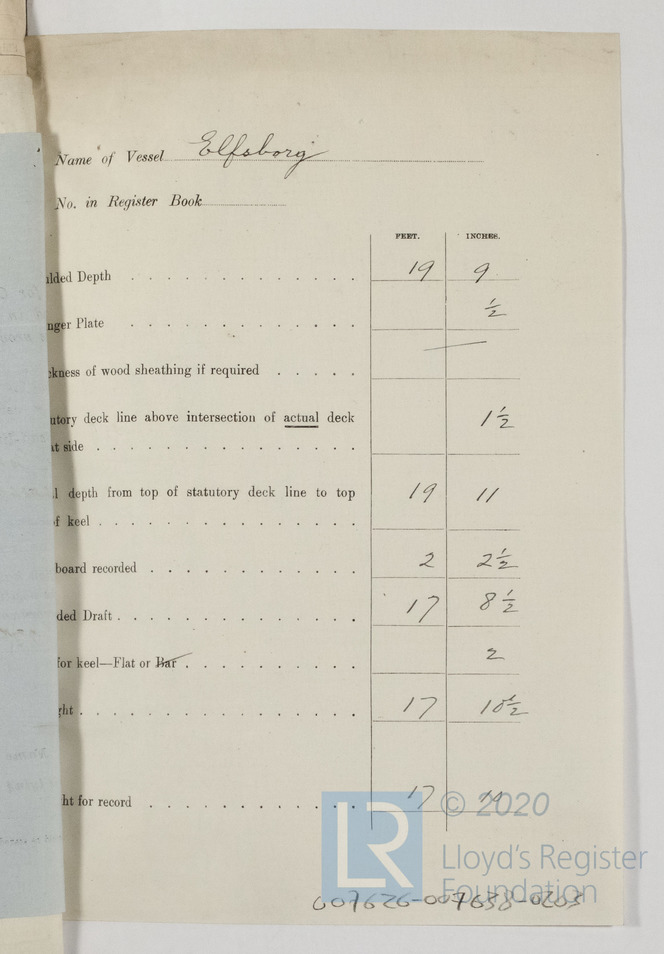 Name of Vessel Elfsborg
No. in Register Book
FEET. INCHES.
ulded Depth 19 9
nger Plate ½
kness of wood sheathing if required —
utory deck line above intersection of actual deck
at side 1½
l depth from top of statutory deck line to top 19 11
of keel
board recorded 2 2½
ded Draft 17 8½
for keel—Flat or Bar 2
ght 17 10½
ht for record 17
© 2020
LR
Lloyd's Register
Foundation
007626-007658-0205